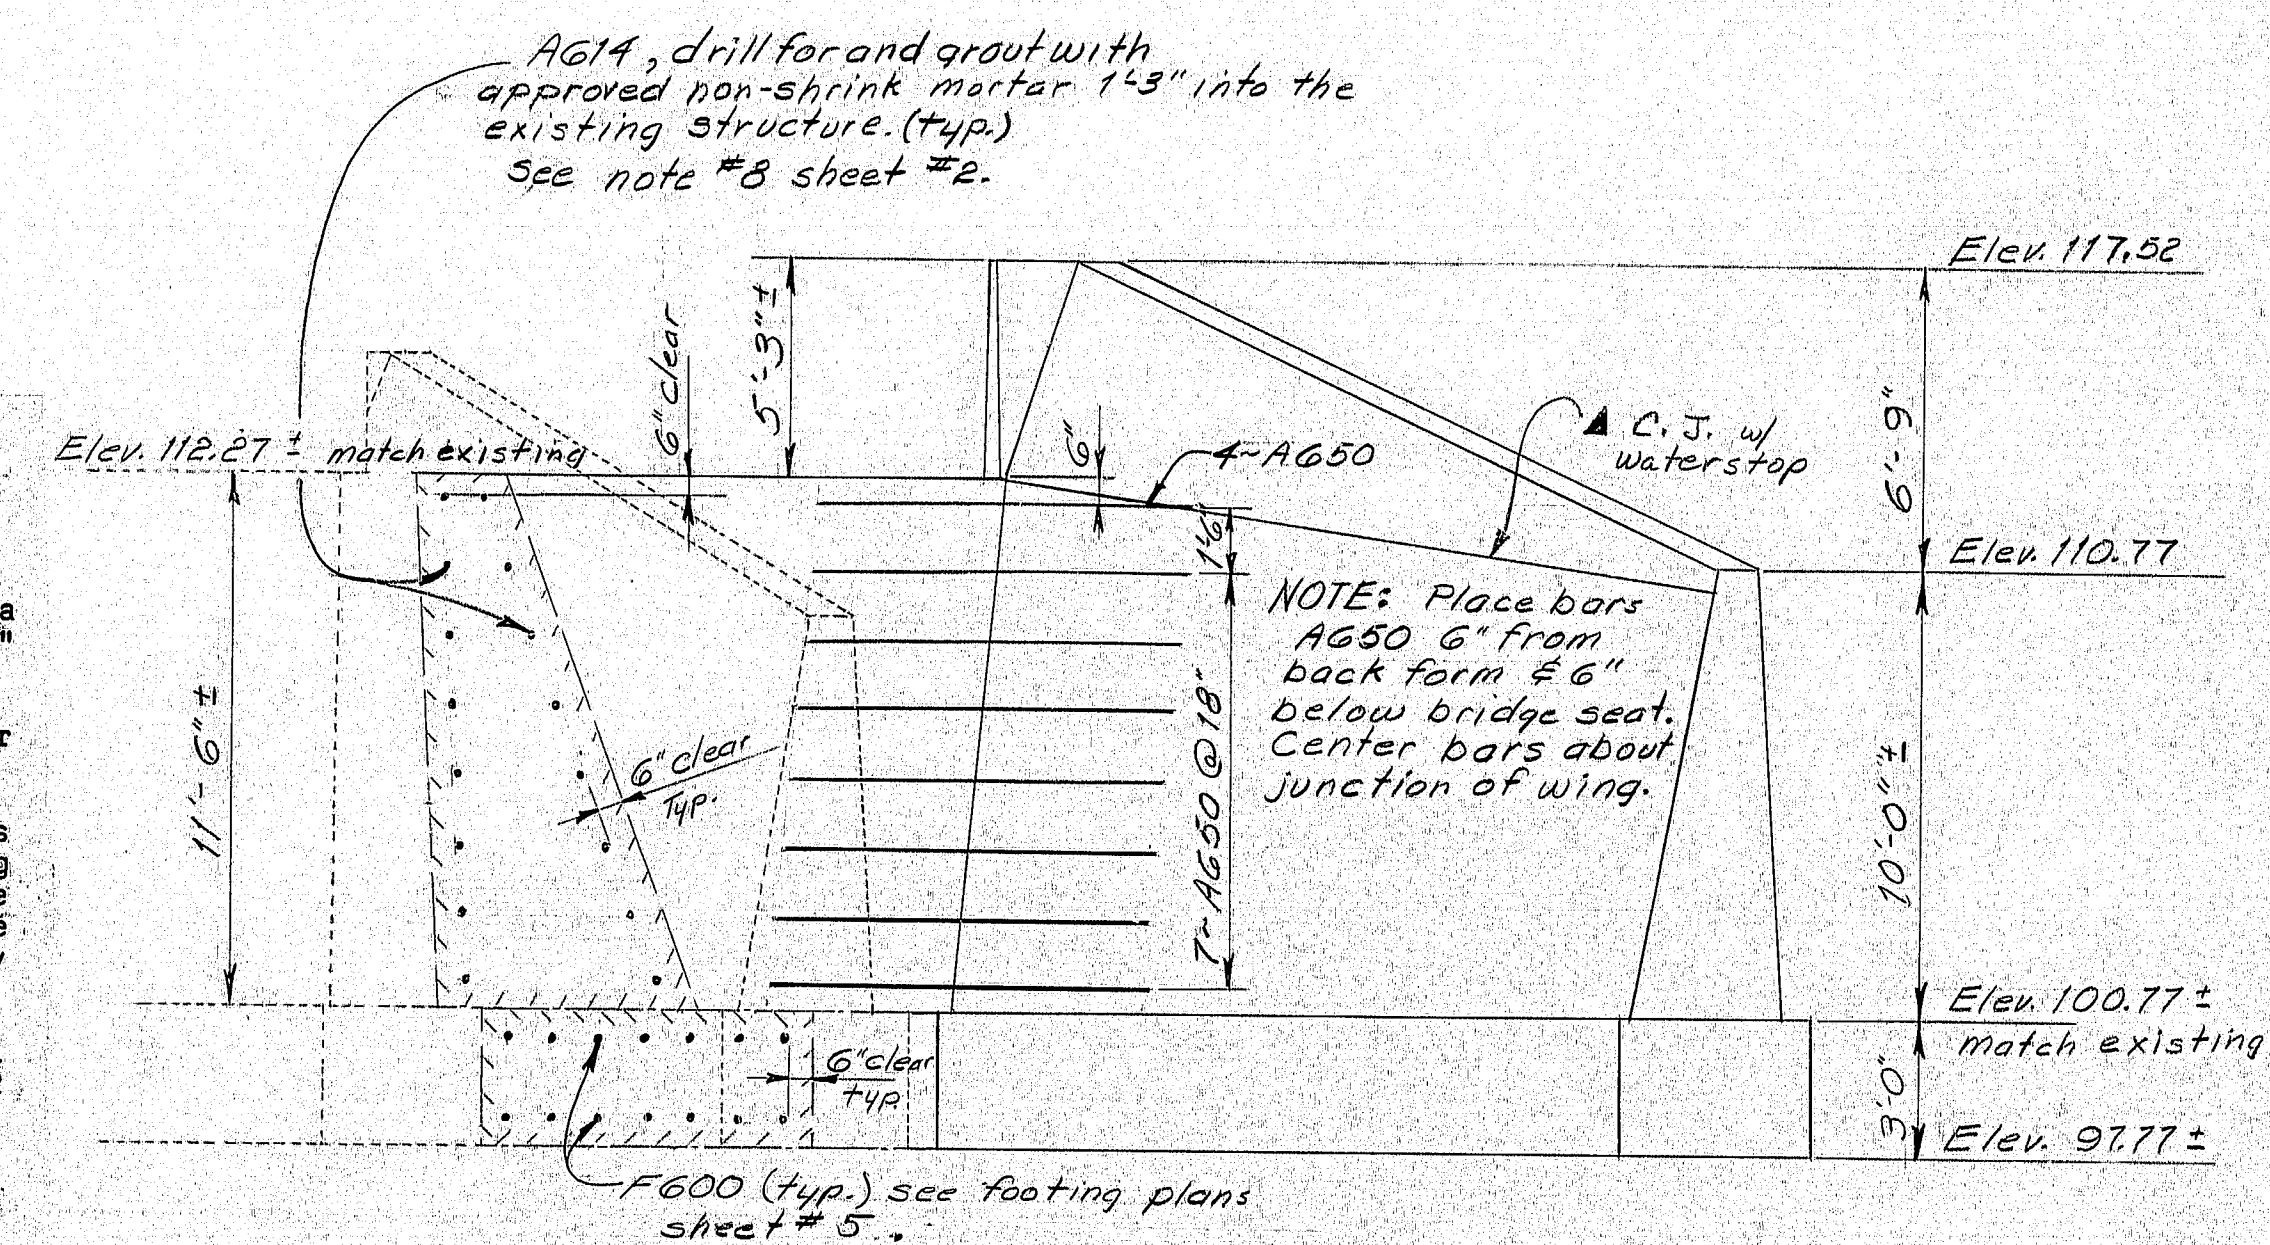 A614, drill for and grout with
approved non-shrink mortar 1'-3" into the
existing structure. (typ.)
See note #8 sheet #2.
Elev. 117.52
5'-3"±
6" clear
6'-9"
6"
4~A650
▲ C.J. w/
waterstop
Elev. 112.27 ± match existing
1'-6"
Elev. 110.77
NOTE: Place bars
A650 6" from
back form & 6"
below bridge seat.
Center bars about
junction of wing.
11'-6"±
6" clear
Typ.
7~A650 @ 18"
10'-0"±
Elev. 100.77 ±
match existing
6" clear
typ.
3'-0"
Elev. 97.77 ±
F600 (typ.) see footing plans
sheet # 5.